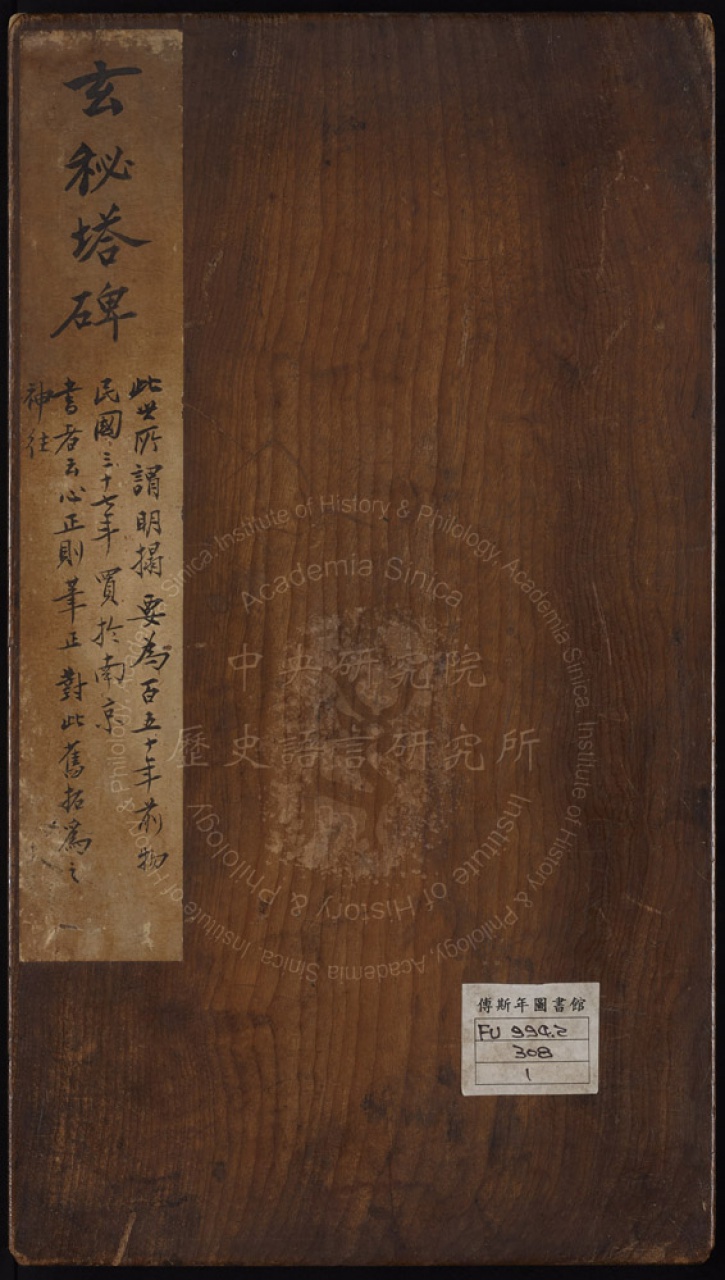 玄秘塔碑
此世所謂明搨要為百五十年前物
民國三十七年買於南京
書者云心正則筆正對此舊拓為之
神往
Institute of History & Philology, Academia Sinica
Academia Sinica
中央研究院
歷史語言研究所
Institute of History & Philology
傅斯年圖書館
FU 994.2
308
1